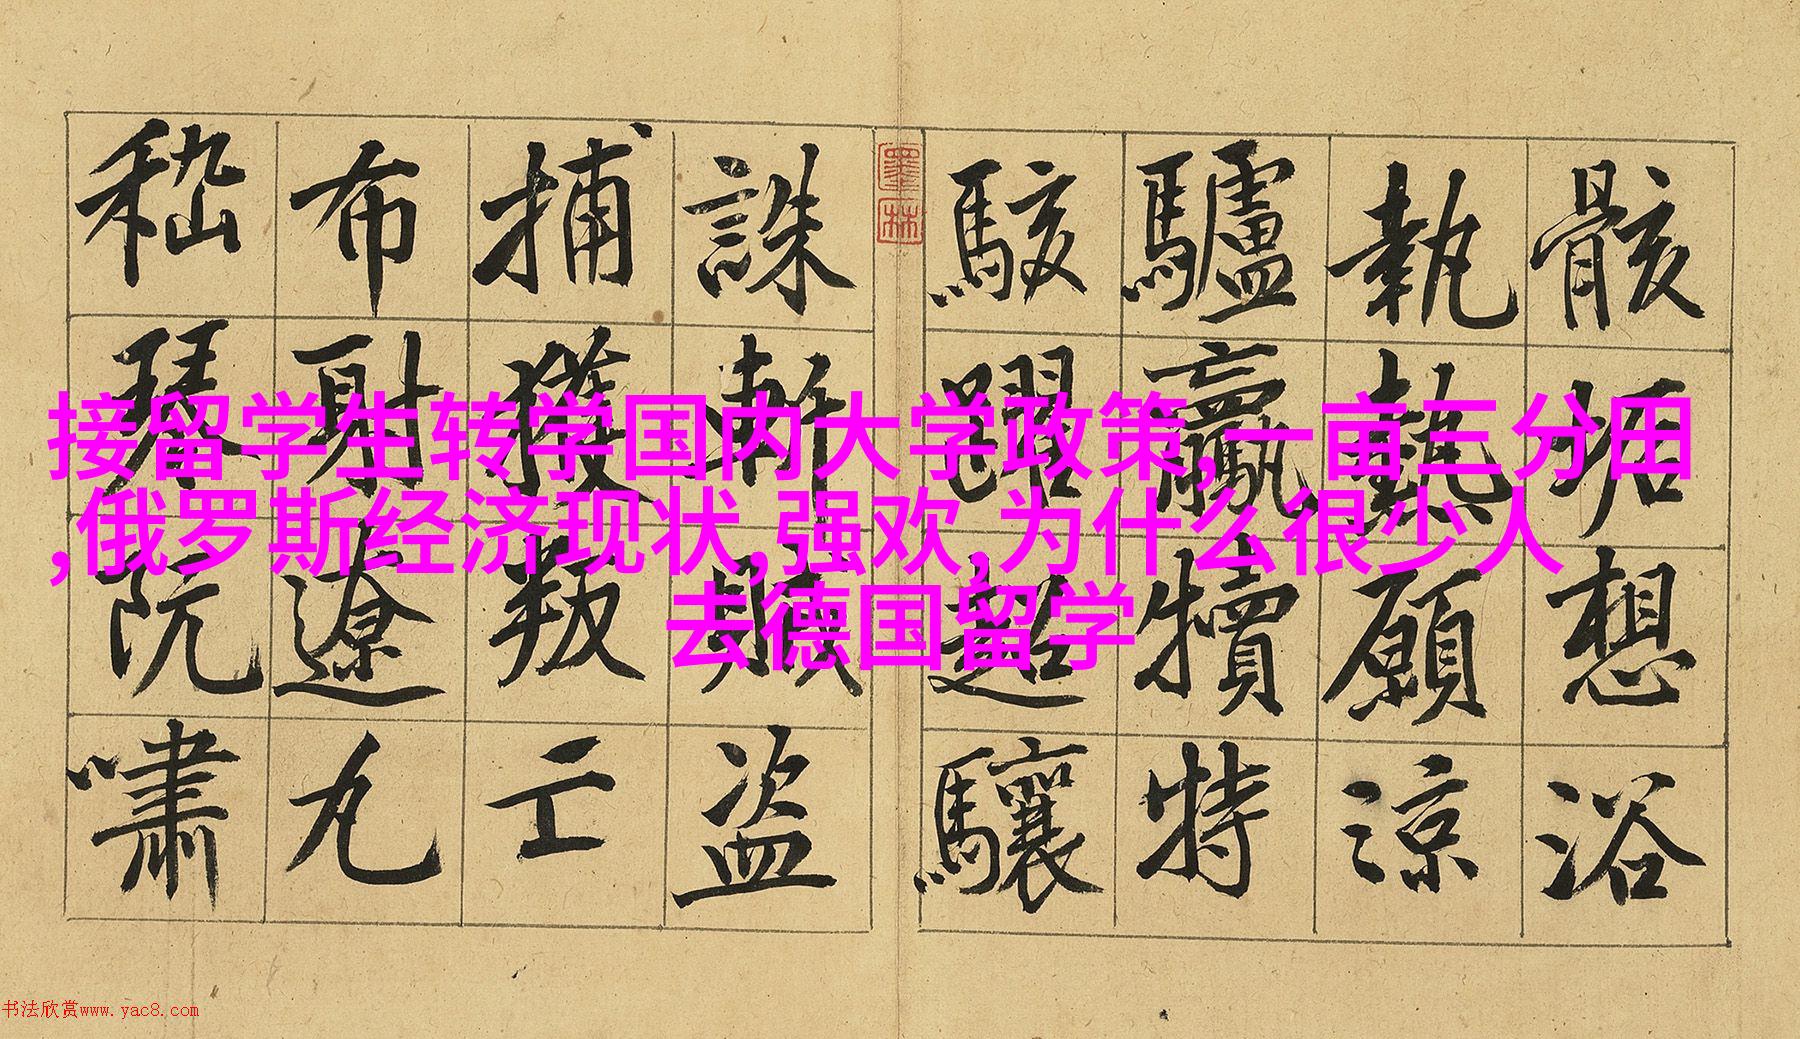 骸垢想浴
執熱願涼
驢騾犢特
駭躍超驤
誅斬賊盜
捕獲叛亡
布射遼丸
嵇琴阮嘯
接留学生转学国内大学政策,一亩三分田
,俄罗斯经济现状,强欢,为什么很少人
去德国留学
书法欣赏www.yac8.com